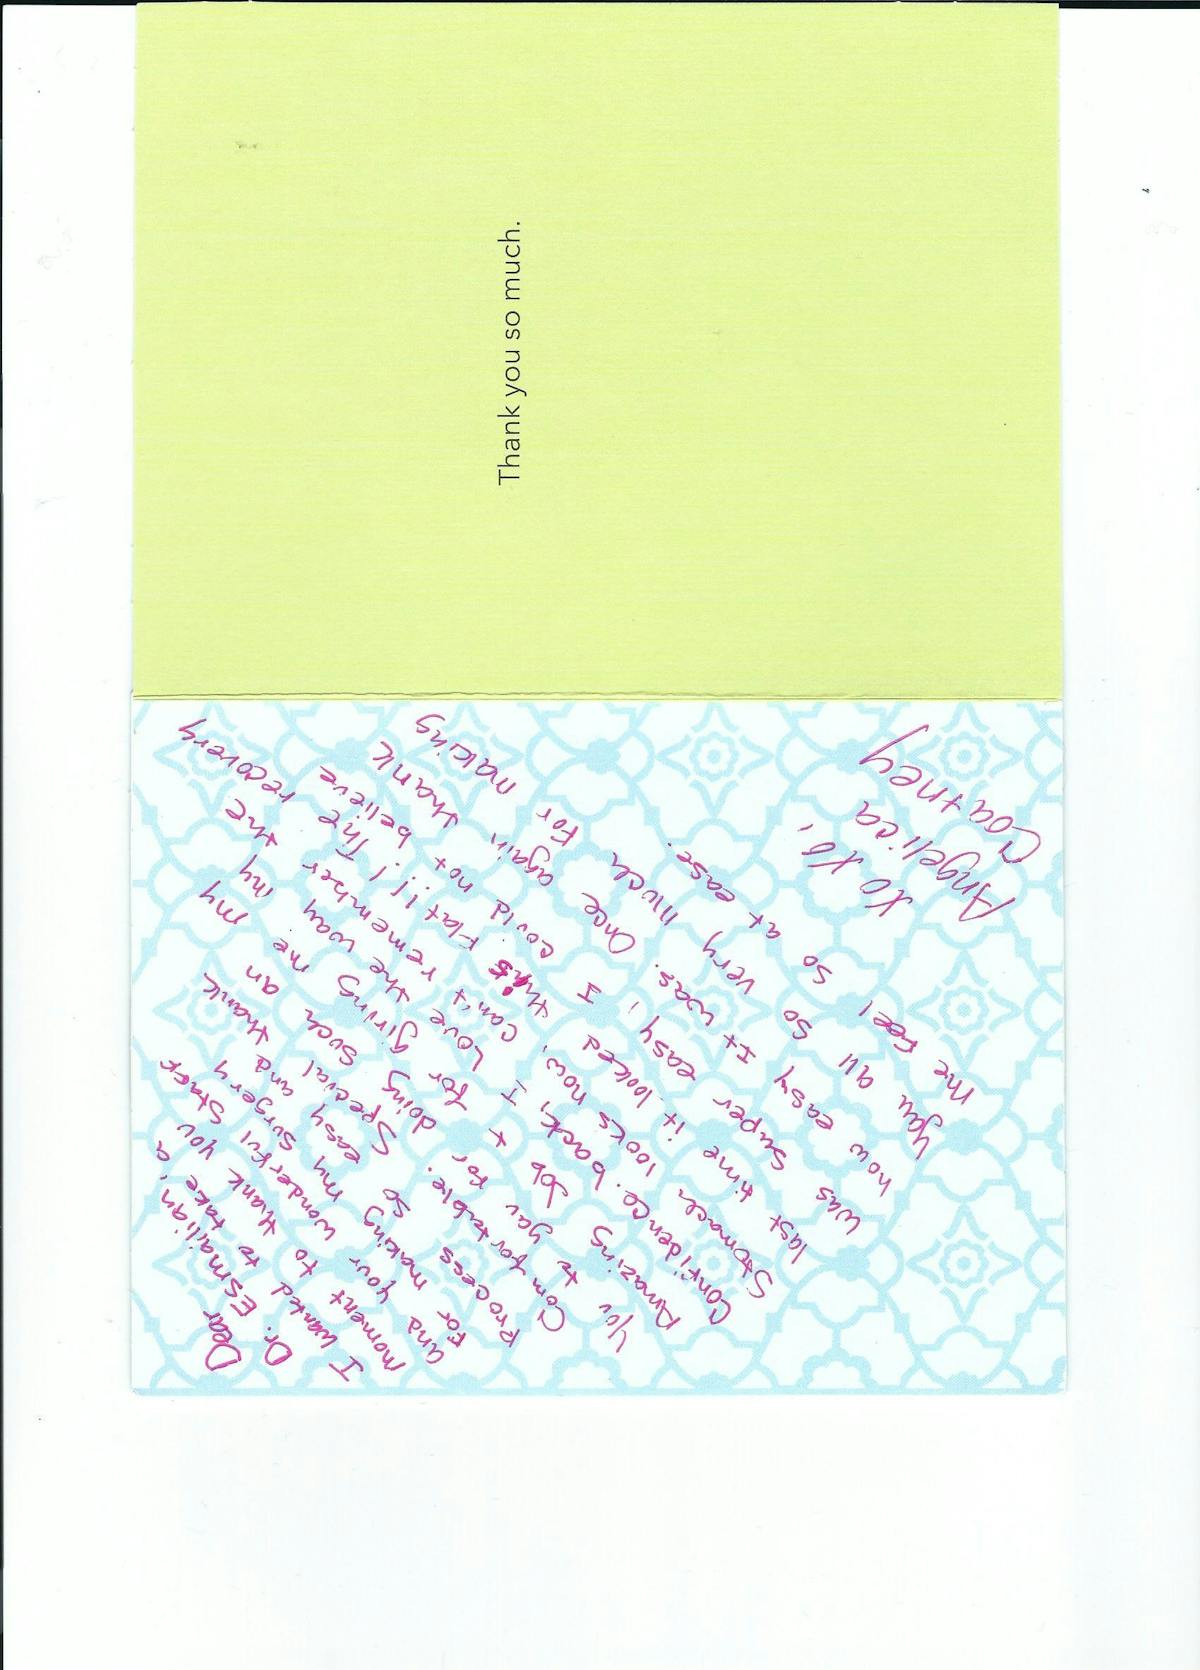 Thank you so much.
Dear
Dr. Esmailian,
I wanted to take a
moment to thank you
and your wonderful staff
for making my surgery and
process so easy
comfortable. Special thank
you to you for doing such an
Amazing job + for giving me my
Confidence back, I love the way my
Stomach looks now, I can't remember the
last time it looked this Flat!!! The recovery
was super easy, I could not believe
how easy It was. Once again, thank
you all so very much For making
me feel so at ease.
XO XO,
Angelica
Courtney